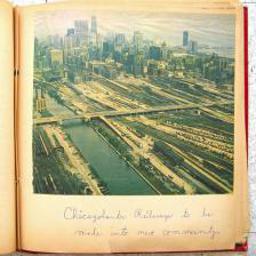 Chicagoland's Railways to be
made into new community.